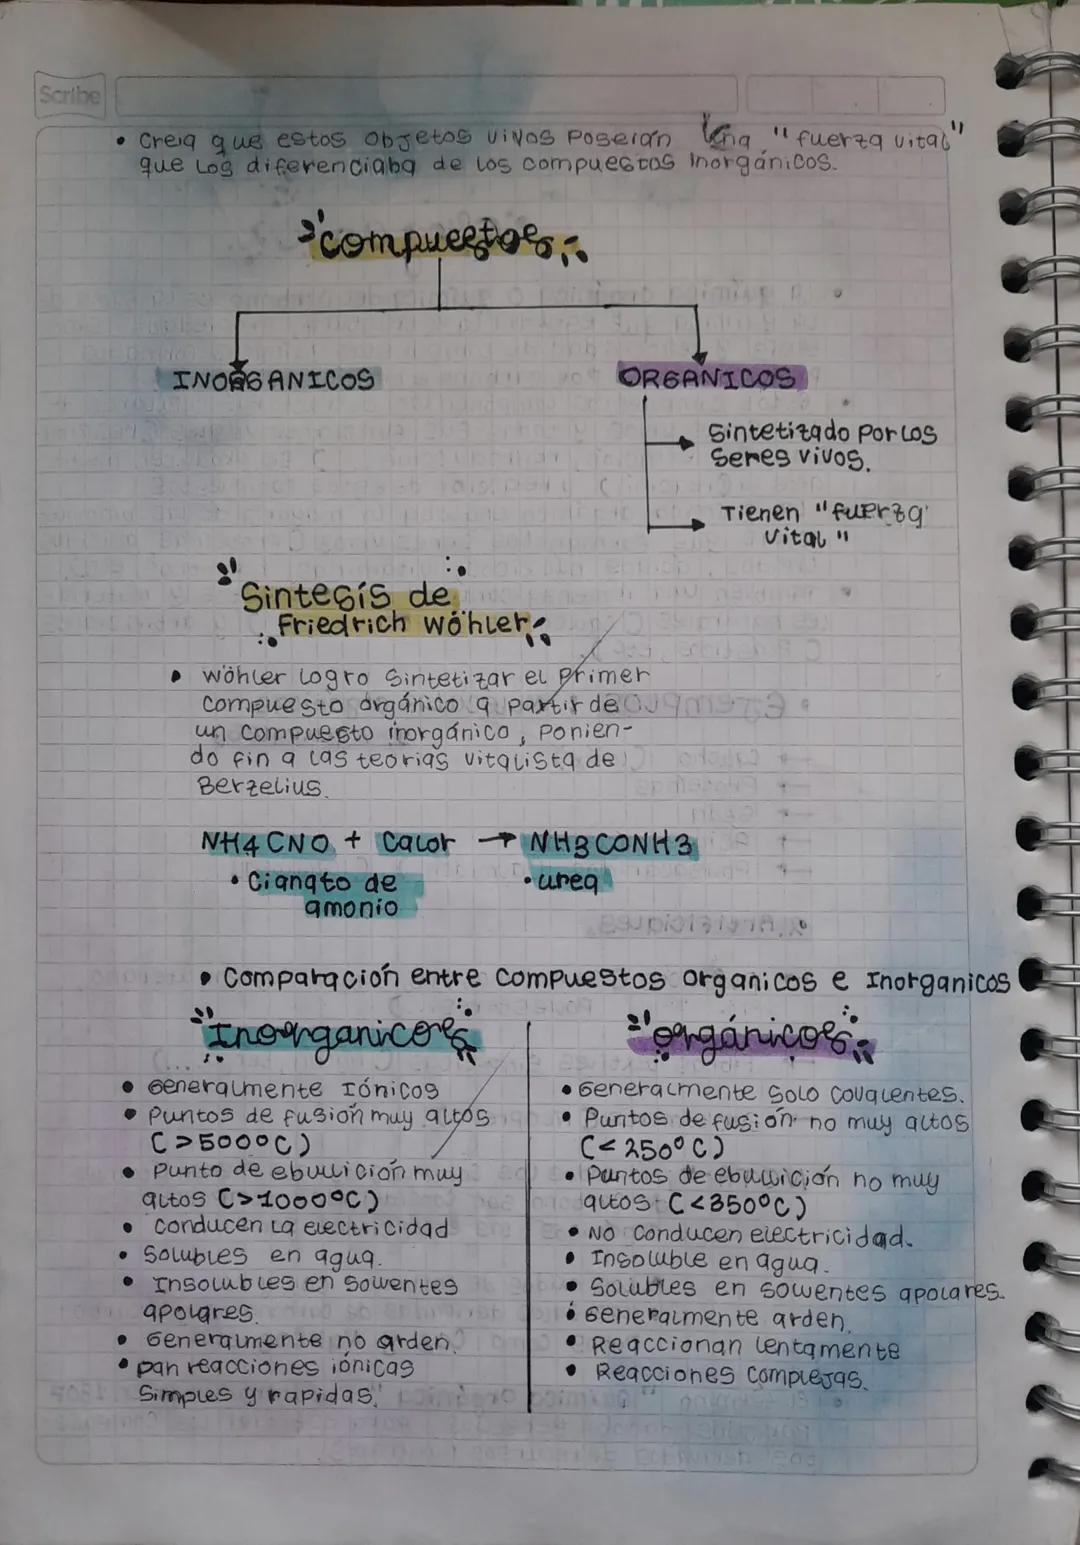 Scribe
• Creia que estos objetos vivos Poseían una "fuerza vital"
que Los diferenciaba de los compuestos Inorgánicos.
compuestos
INORGANICOS
ORGANICOS
Sintetizado Por Los
Seres vivos.
Tienen "fuerza
vital"
Síntesis de
Friedrich Wöhler
• Wöhler Logro Sintetizar el Primer
Compuesto orgánico a partir de
un compuesto inorgánico, Ponien-
do fin a las teorias vitalista de
Berzelius.
NH4CNO + Calor → NH3CONH3
• Cianato de
amonio
• urea
• Comparación entre compuestos organicos e Inorganicos
Inorganicos
• Generalmente Iónicos
• Puntos de fusión muy altos
(>500°C)
• Punto de ebullición muy
altos (>1000°C)
• Conducen La electricidad
• Solubles en agua.
• Insolubles en Solventes
apolares.
• Generalmente no arden.
• Dan reacciones iónicas
Simples y rapidas.
orgánicos
• Generalmente Solo covalentes.
• Puntos de fusión no muy altos
(<250°C)
• Puntos de ebullición no muy
altos (<350°C)
• No conducen electricidad.
• Insoluble en agua.
• Solubles en solventes apolares.
• Generalmente arden.
• Reaccionan Lentamente
• Reacciones Complejas.